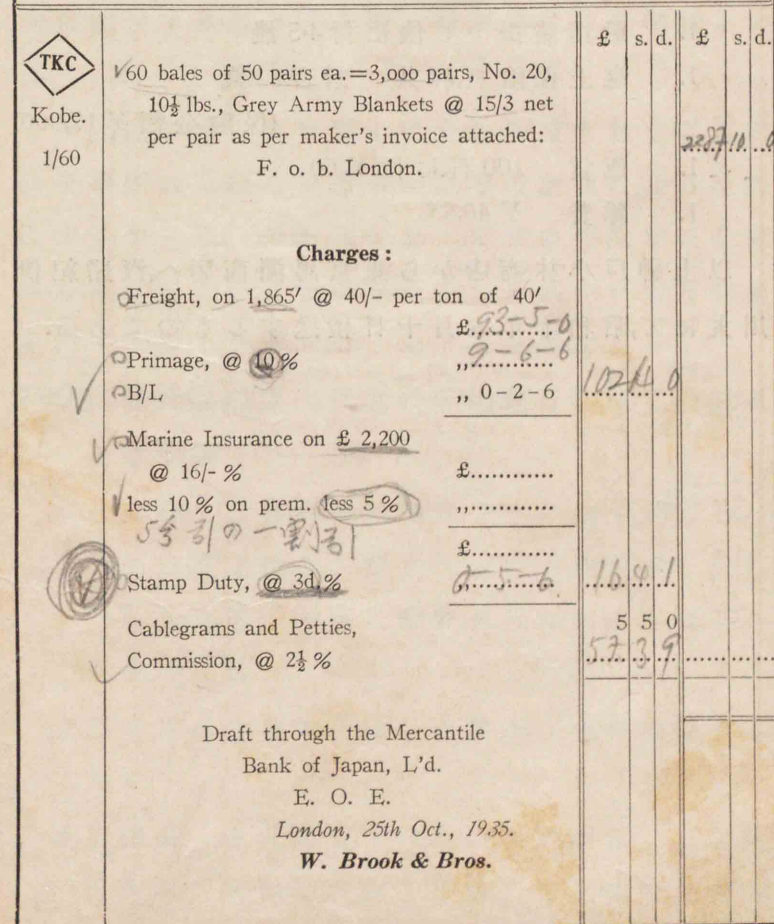 £ s. d. £ s. d.
TKC
Kobe.
1/60
60 bales of 50 pairs ea.=3,000 pairs, No. 20,
10½ lbs., Grey Army Blankets @ 15/3 net
per pair as per maker's invoice attached:
2287 10. 0
F. o. b. London.
Charges :
Freight, on 1,865′ @ 40/- per ton of 40′
£ 93-5-0
Primage, @ 10 % ,, 9-6-6
B/L ,, 0-2-6 102 14 0
Marine Insurance on £ 2,200
@ 16/- % £............
less 10 % on prem. less 5 % ,,............
5分引の一割引
£............
Stamp Duty, @ 3d. % 0-5-6 16 4 1
Cablegrams and Petties, 5 5 0
Commission, @ 2½ % 57 3 9
Draft through the Mercantile
Bank of Japan, L'd.
E. O. E.
London, 25th Oct., 1935.
W. Brook & Bros.